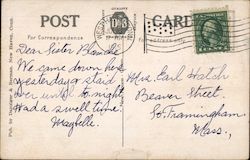 POST
CARD
For Correspondence
Dear Sister Blanche
We came down here
yesterday. staid
over until to-night.
Had a swell time.
Maybelle.
Mrs. Earl Hatch
Beaver Street
So. Framingham
Mass.,